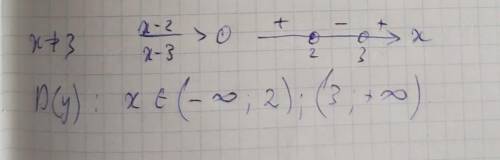 x≠3   x-2/x-3 > 0   + - + 2 3 x
D(y): x ∈ (-∞; 2); (3; +∞)